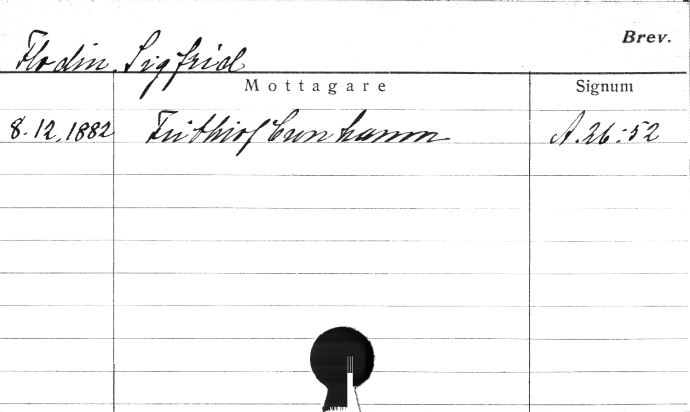 Brev.
Flodin, Sigfrid
Mottagare Signum
8.12.1882 Frithiof Cronhamn A.26:52